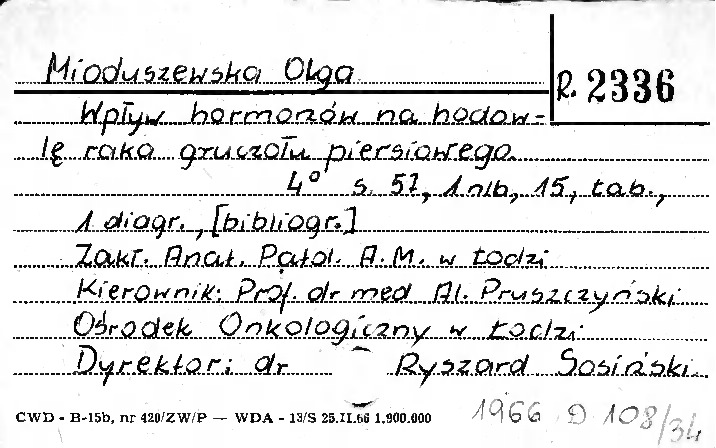 Mioduszewska Olga
R. 2336
Wpływ hormonów na hodow-
lę raka gruczołu piersiowego.
4° s. 51, 1 nlb, 15, tab.,
1 diagr., [bibliogr.]
Zakł. Anat. Patol. A.M. w Łodzi
Kierownik: Prof. dr med Al. Pruszczyński
Ośrodek Onkologiczny w Łodzi
Dyrektor: dr – Ryszard Sosiński
CWD - B-15b, nr 420/ZW/P — WDA - 13/S 25.II.66 1.900.000
1966 D 108/34